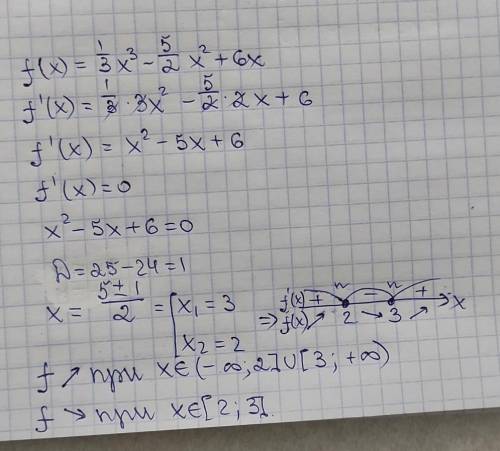 f(x) = 1/3 x³ - 5/2 x² + 6x
f'(x) = 1/3 · 3x² - 5/2 · 2x + 6
f'(x) = x² - 5x + 6
f'(x) = 0
x² - 5x + 6 = 0
D = 25 - 24 = 1
x = (5 ± 1)/2 = [x₁ = 3
x₂ = 2
n n
f'(x) + - + x
⇒ f(x) ↗ 2 ↘ 3 ↗
f ↗ при x∈(-∞; 2]∪[3; +∞)
f ↘ при x∈[2; 3].